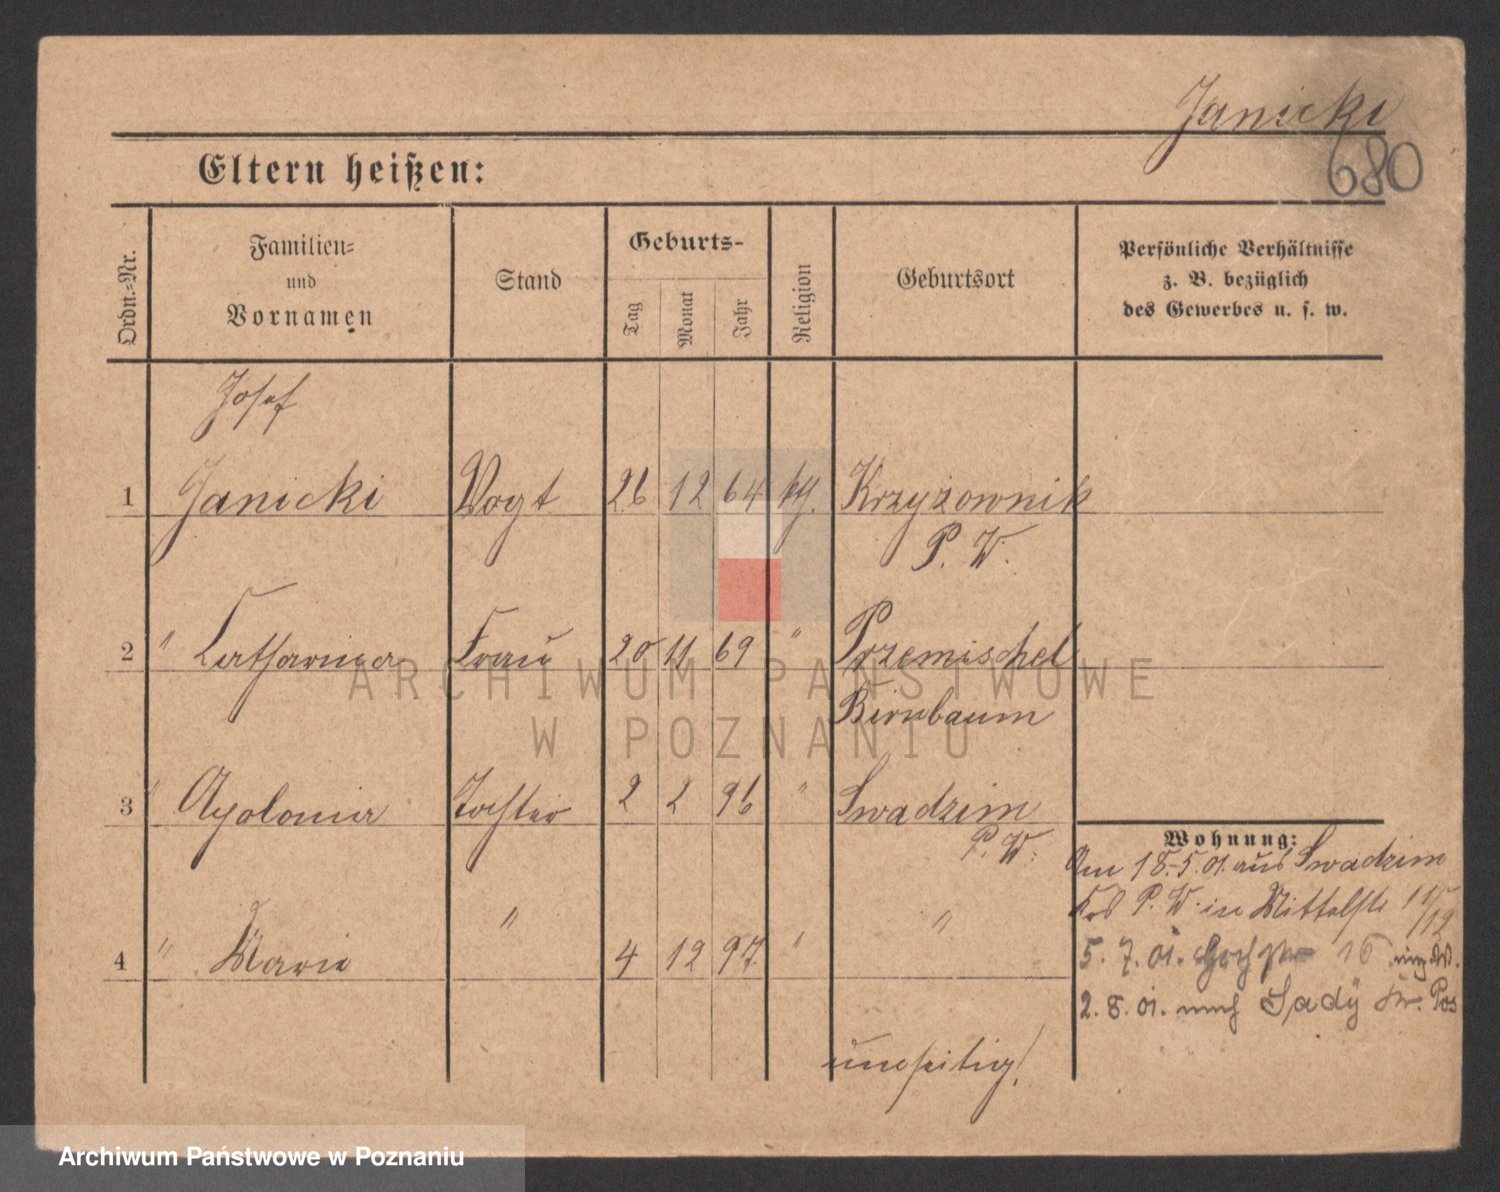 Janicki
680
Eltern heißen:
Ordn.-Nr.
Familien-
und
Vornamen
Stand
Geburts-
Tag
Monat
Jahr
Religion
Geburtsort
Persönliche Verhältnisse
z. B. bezüglich
des Gewerbes u. s. w.
Josef
1 Janicki Vogt 26 12 64 kg. Krzyżownik
P. W.
2 " Catharina Frau 20 11 69 " Przemischel
Birnbaum
3 " Apolonia Tochter 2 2 96 " Swadzim
P. W.
4 " Marie " 4 12 97 " "
Wohnung:
Am 18.5.01. aus Swadzim
Krs P. W. in Mittelstr 11/12
5. 7. 01. 16
2. 8. 01. nach Sady Kr. Pos
umseitig!
ARCHIWUM PAŃSTWOWE
W POZNANIU
Archiwum Państwowe w Poznaniu